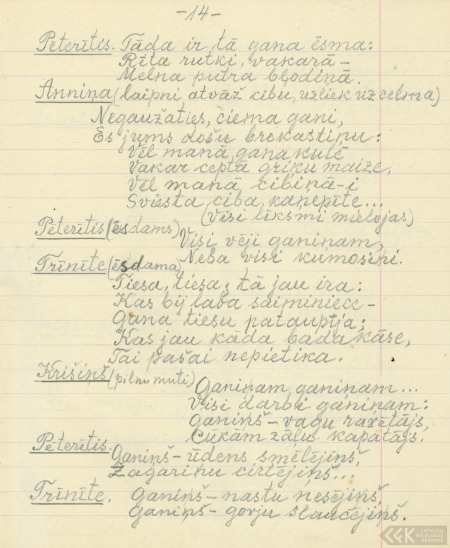 -14-
Peterītis. Tāda ir tā gana ēsma:
Rīta rutki, vakarā –
Melna putra bļodiņā.
Anniņa (laipni atvāž cibu, uzliek uz celma)
Negaužaties, ciema gani,
Es jums došu brokastiņu:
Vēl manā gana kulē
Vakar cepta griķu maize,
Vēl manā cibiņā-i
Sviesta ciba, kaņepīte...
(Visi līksmi mielojas)
Peterītis (ēsdams) Visi vēji ganiņam,
Neba visi kumosiņi.
Trīnīte (ēsdama)
Tiesa, tiesa, tā jau ira:
Kas bij laba saiminiece –
Gana tiesu pataupīja;
Kas jau kāda bada kāse,
Tai pašai nepietika.
Krišiņš (pilnu muti) Ganiņam, ganiņam...
Visi darbi ganiņam:
Ganiņš – vagu ravētājs,
Cūkām zāļu kapātājs.
Peterītis. Ganiņš – ūdens smēlējiņš,
Žagariņu cirtējiņš...
Trīnīte. Ganiņš – nastu nesējiņš,
Ganiņš – govju slaucējiņš.
LATVIEŠU
FOLKLORAS
KRĀTUVE